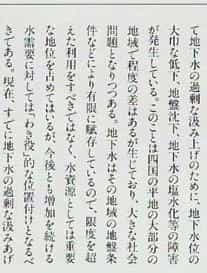 て地下水の過剰な汲み上げのために、地下水位の
大巾な低下、地盤沈下、地下水の塩水化等の障害
が発生している。このことは四国の平地の大部分の
地域で程度の差はあるが生じており、大きな社会
問題となりつつある。地下水はその地域の地盤条
件などにより有限に賦存しているので、限度を超
えた利用をすべきではなく、水資源としては重要
な地位を占めてはいるが、今後とも増加を続ける
水需要に対しては「わき役」的な位置付けとなるべ
きである。現在、すでに地下水の過剰な汲みあげ